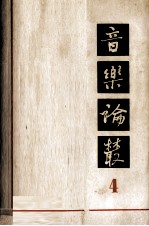 音樂論叢
4